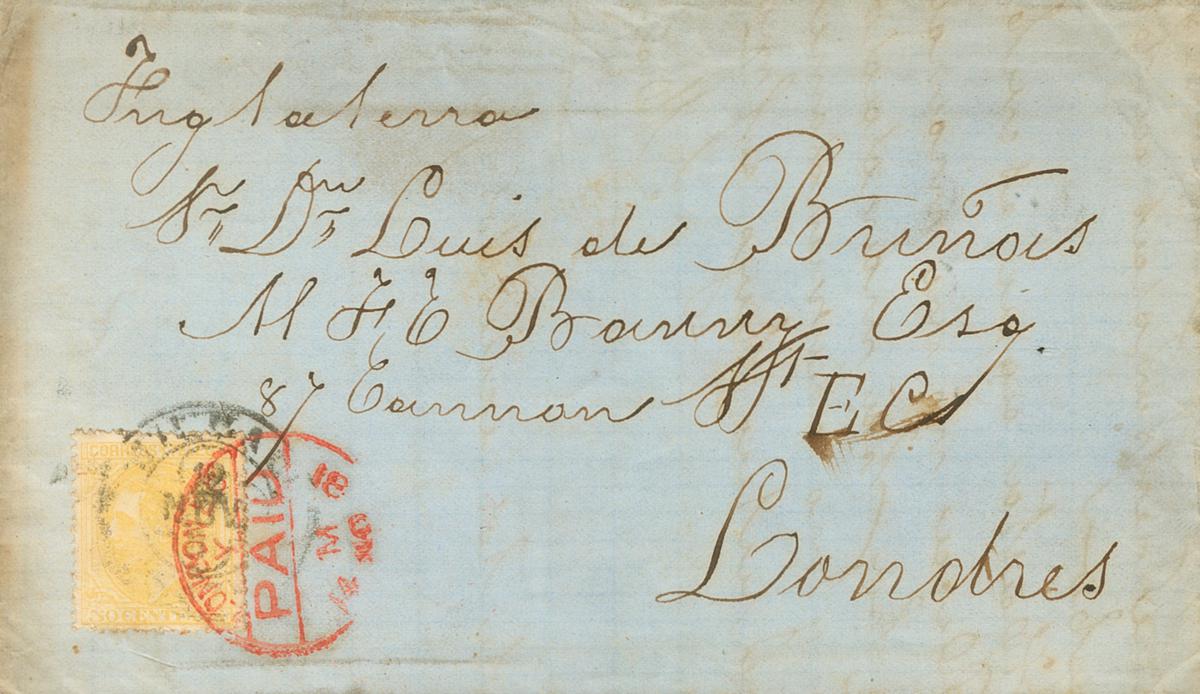 Inglaterra
Sr. Dn. Luis de Bruñas
M F E Bauny Esq.
87 Cannon St E C
Londres
CORREOS
50 CENT
PAID
LONDON
18